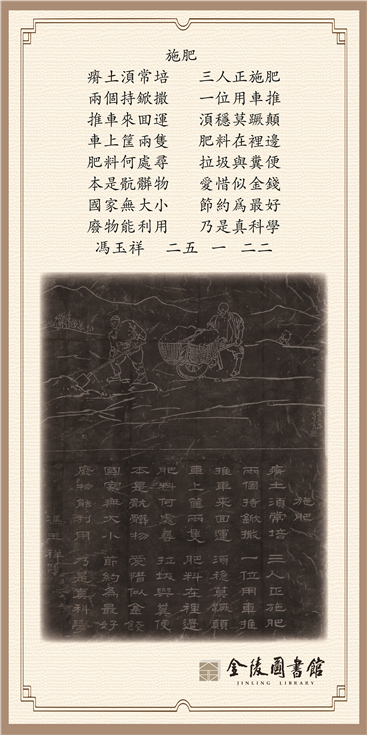 施肥
瘠土須常培 三人正施肥
兩個持鍁撒 一位用車推
推車來回運 須穩莫蹶顛
車上筐兩隻 肥料在裡邊
肥料何處尋 拉圾與糞便
本是骯髒物 愛惜似金錢
國家無大小 節約爲最好
廢物能利用 乃是真科學
馮玉祥 二五 一 二二
施肥
瘠土須常培 三人正施肥
兩個持鍁撒 一位用車推
推車來回運 須穩莫蹶顛
車上筐兩隻 肥料在裡邊
肥料何處尋 拉圾與糞便
本是骯髒物 愛惜似金錢
國家無大小 節約為最好
廢物能利用 乃是真科學
馮玉祥
金陵圖書館
JINLING LIBRARY